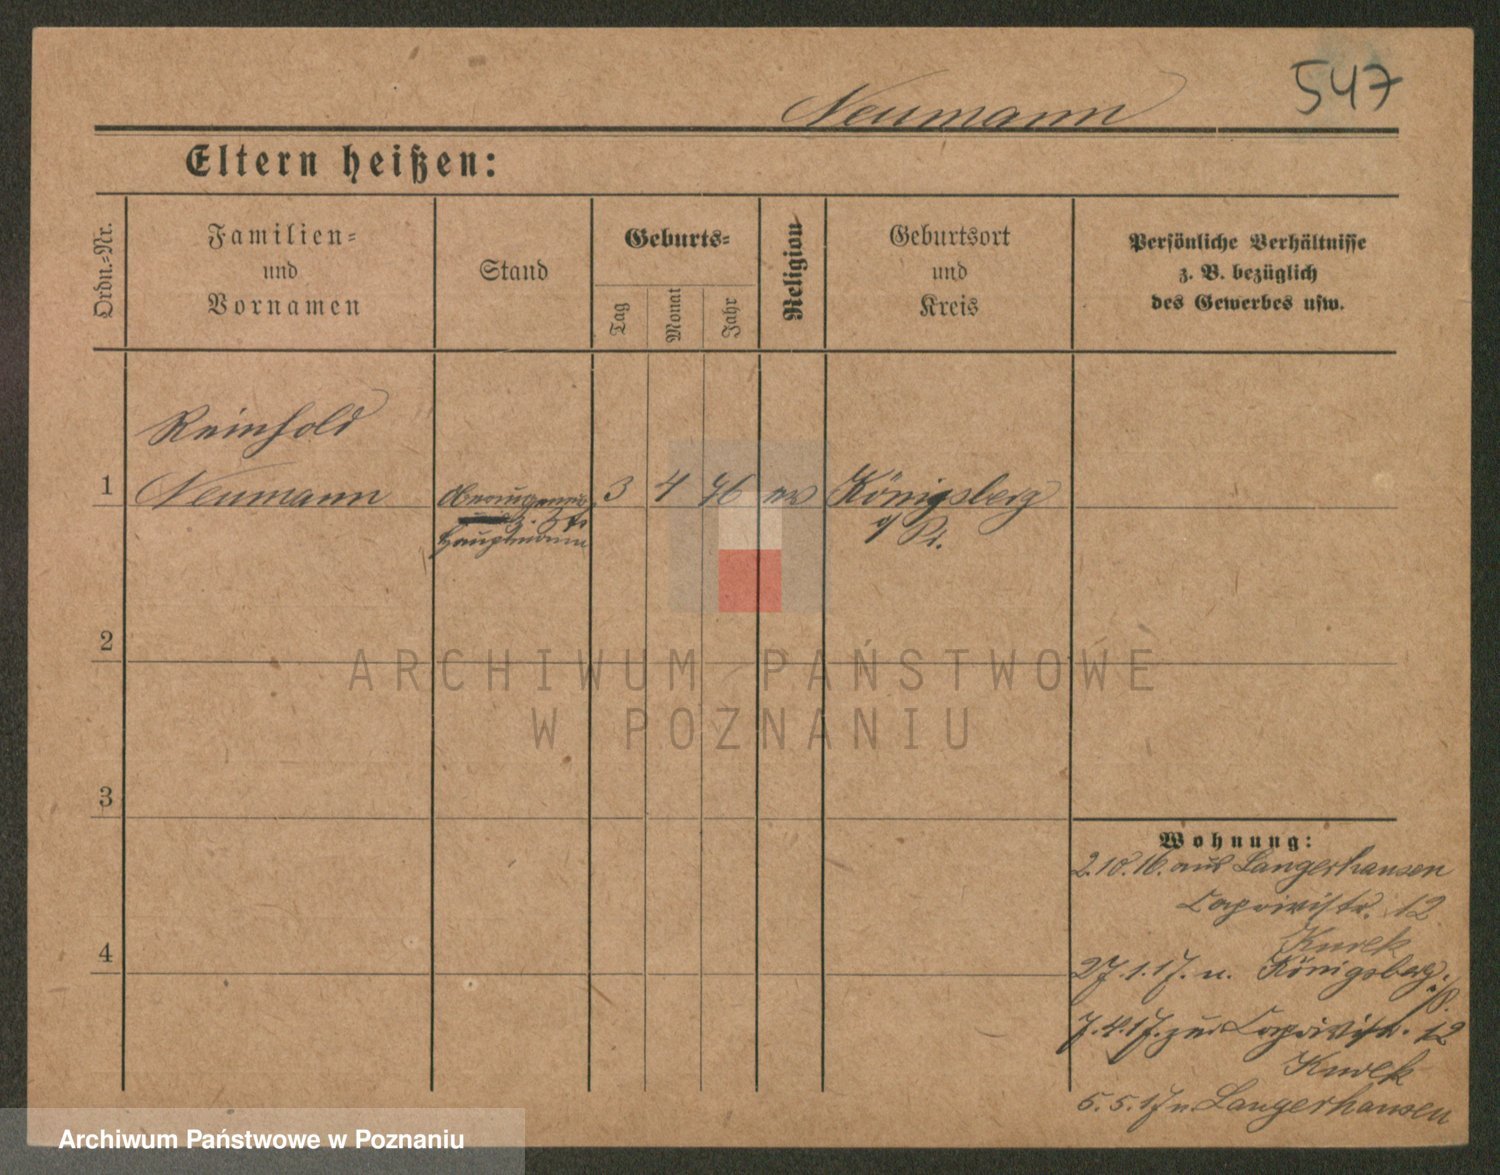 547
Neumann
Eltern heißen:
Ordn.-Nr.
Familien-
und
Vornamen
Stand
Geburts-
Tag
Monat
Jahr
Religion
Geburtsort
und
Kreis
Persönliche Verhältnisse
z. B. bezüglich
des Gewerbes usw.
Reinhold
1 Neumann 3 4 76 ev Königsberg
z. Zt.
Hauptmann
Pr.
2
ARCHIWUM PAŃSTWOWE
W POZNANIU
3
Wohnung:
2.10.16. aus Langerhansen
Caprivistr. 12
4
27.1.17. n. Königsberg i/P.
7.4.17. zur Caprivistr. 12
5.5.17 n Langerhansen
Archiwum Państwowe w Poznaniu